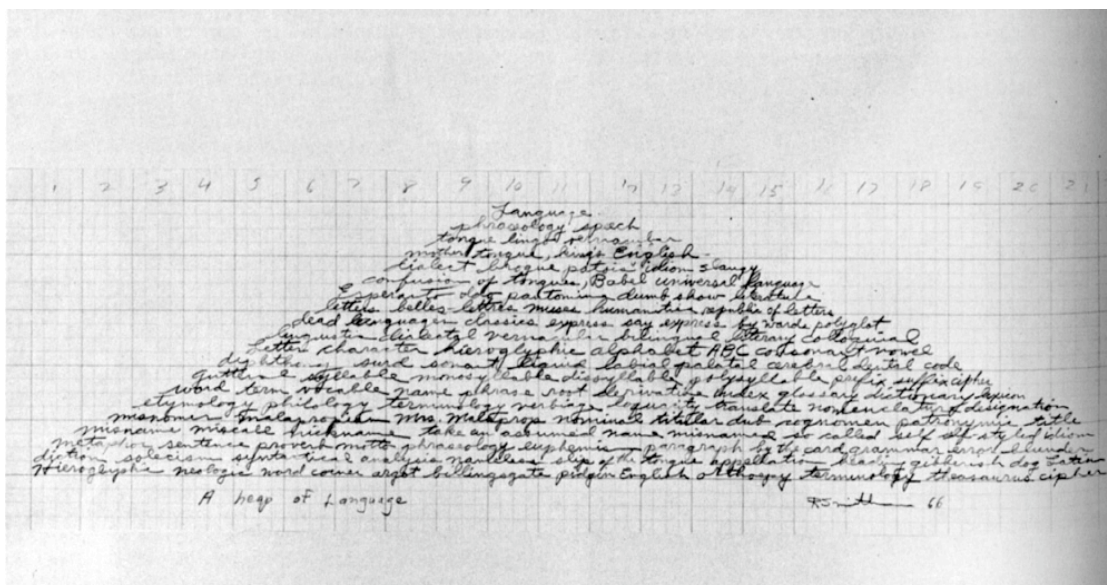 1 2 3 4 5 6 7 8 9 10 11 12 13 14 15 16 17 18 19 20 21
Language
phraseology speech
tongue lingo vernacular
mother tongue, king's English
dialect brogue patois idiom slangy
confusion of tongues, Babel universal language
Esperanto pantomime dumb show literature
letters belles-lettres muses humanities republic of letters
dead languages classics express say express by words polyglot
linguistic dialectal vernacular bilingual literary colloquial
letter character hieroglyphic alphabet ABC consonant vowel
diphthong surd sonant liquid labial palatal cerebral dental code
guttural syllable monosyllable dissyllable polysyllable prefix suffix cipher
word term vocable name phrase root derivative index glossary dictionary lexicon
etymology philology terminology translate nomenclature designation
misnomer malapropism Mrs. Malaprop nominal titular dub cognomen patronymic title
misname miscall nickname take an assumed name misnamed so called self self-styled idiom
metaphor sentence proverb motto phraseology euphemism paragraph grammar error blunder
diction solecism syntactical analysis slip of the tongue appellation gibberish dog Latin
Hieroglyphic neologic word coiner argot billingsgate pidgin English orthoepy terminology thesaurus cipher
A heap of Language
RSmithson 66